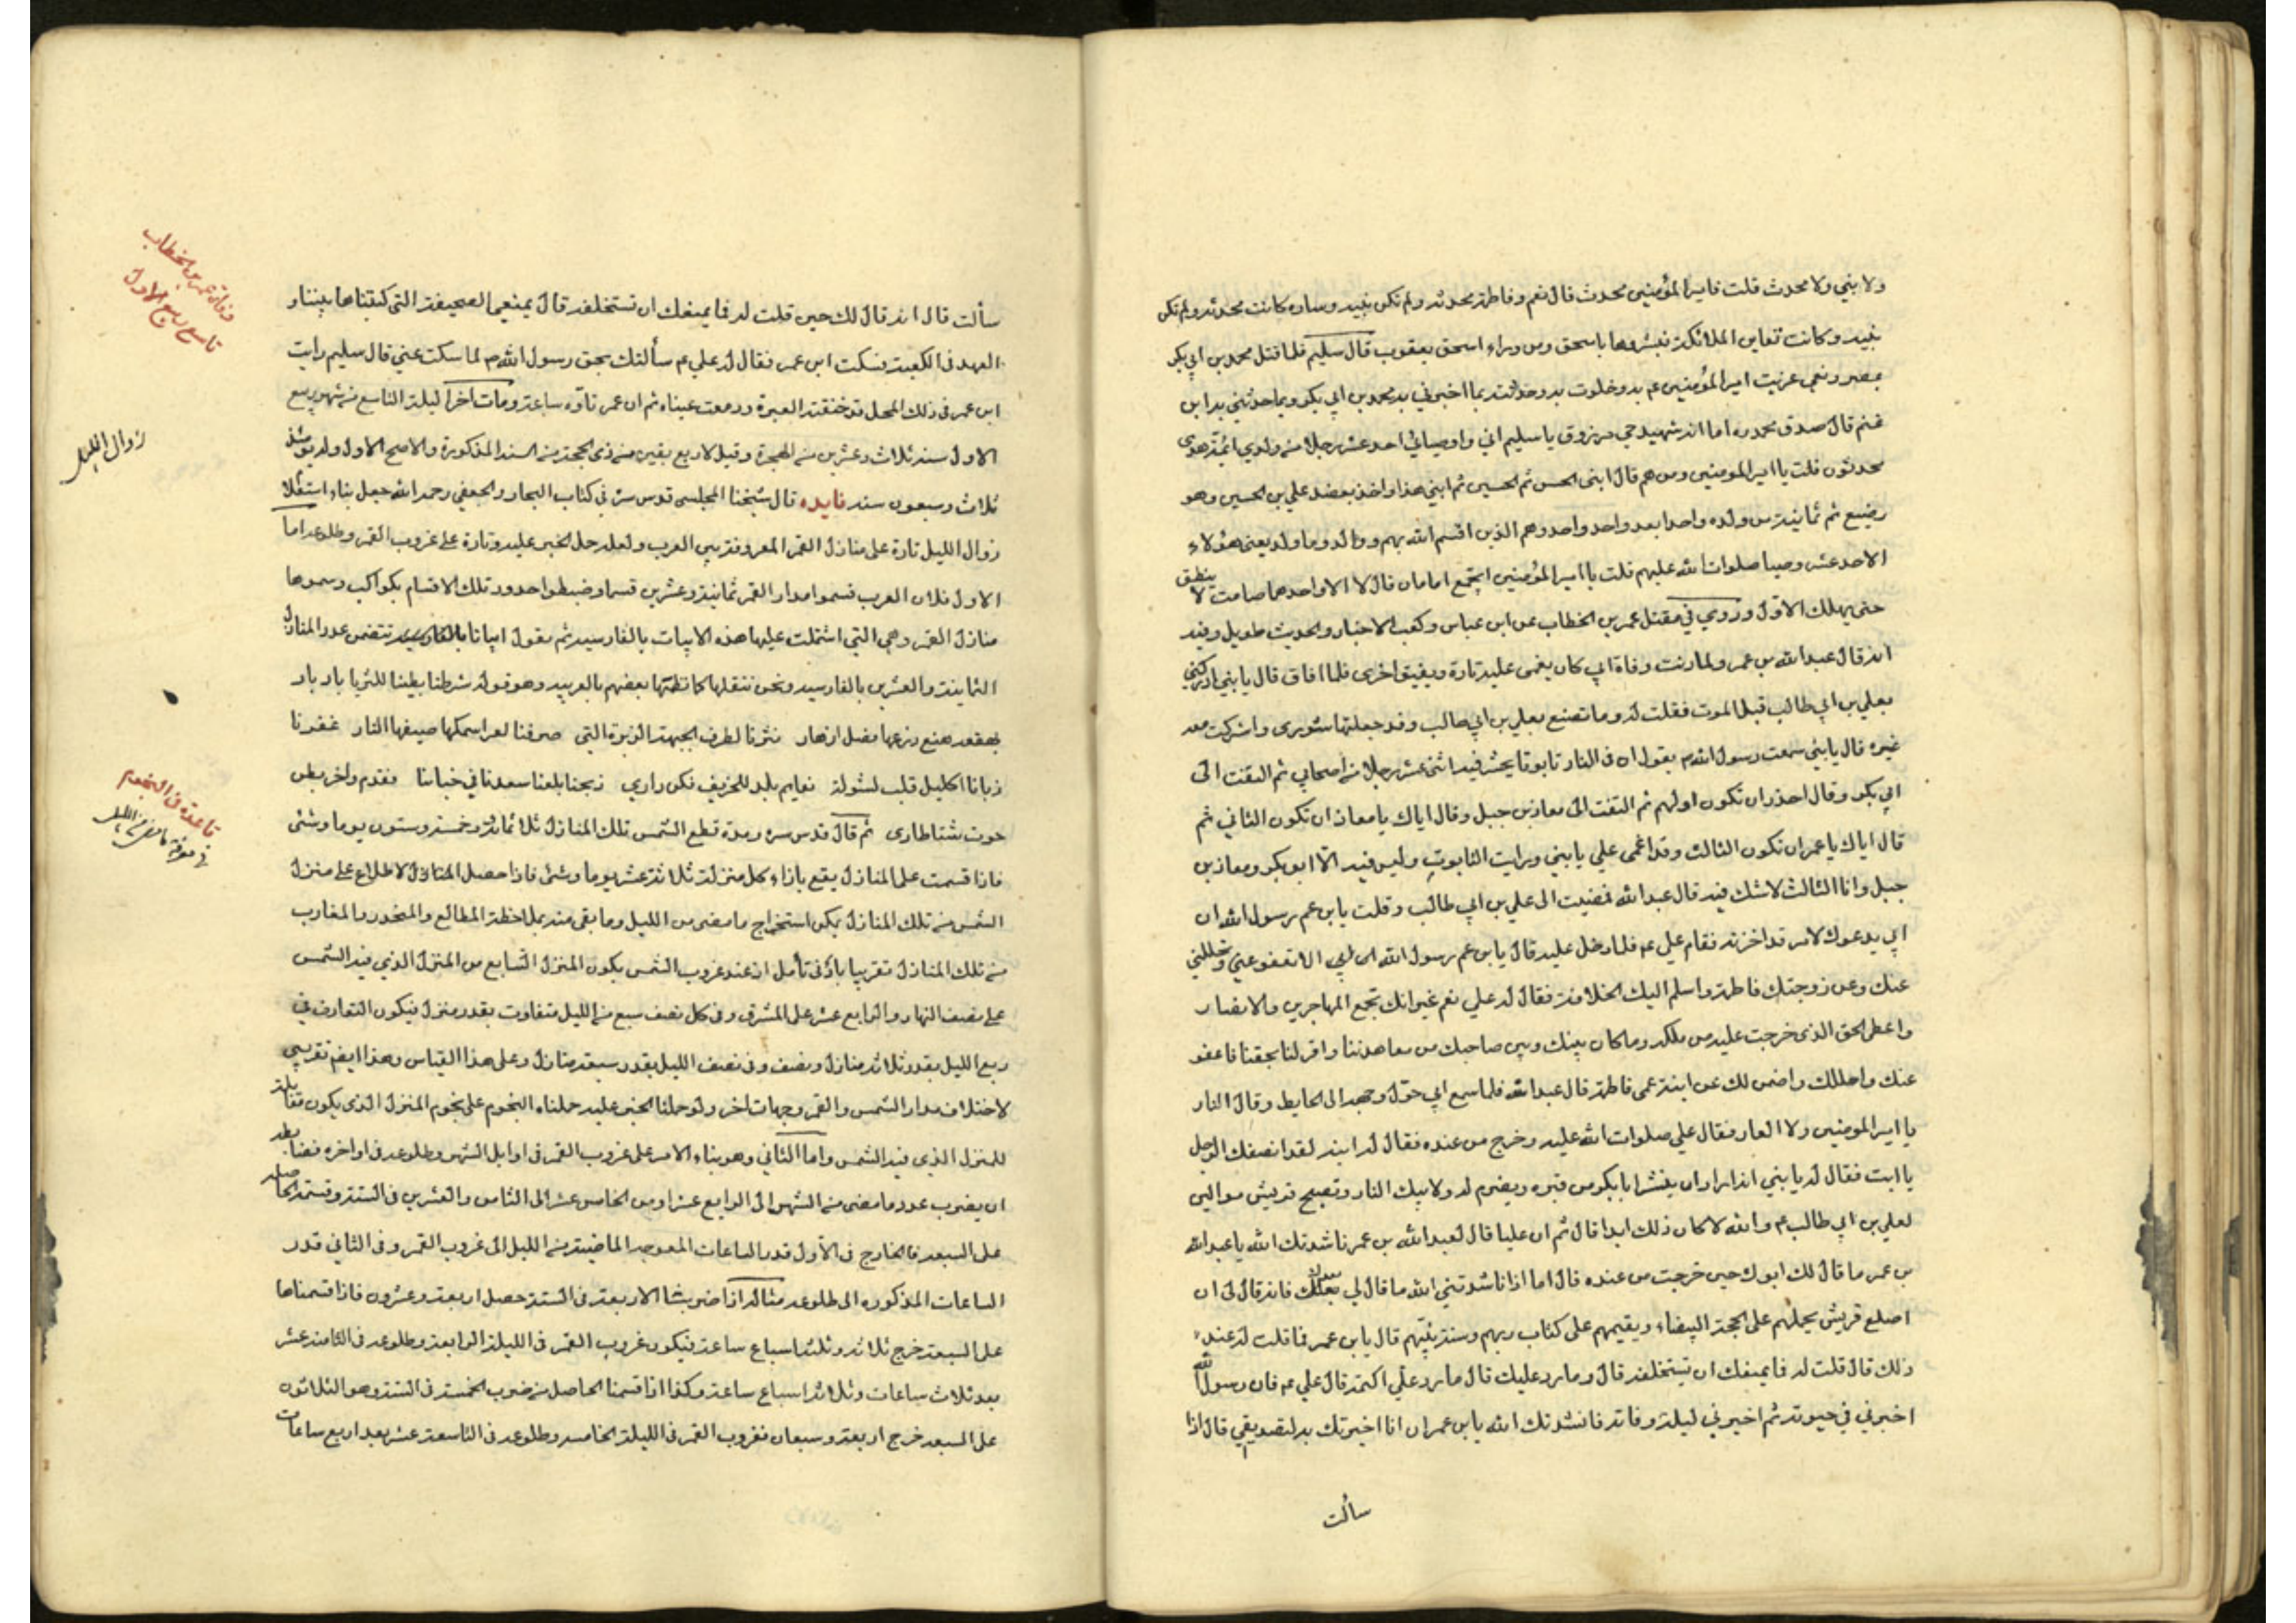 ولا نبي ولا محدث قلت فامير المؤمنين محدث قال نعم وفاطمة محدثه ولم تكن نبيه وساره كانت محدثه ولم تكن
نبيه وكانت تعاين الملائكة فبشروها باسحق ومن وراء اسحق يعقوب قال سليم فلما قتل محمد بن ابي بكر
بمصر ونعي عزيت امير المؤمنين عم به وخلوت به وحدثته بما اخبرني به محمد بن ابي بكر وبما حدثني به ابن
غنم قال صدق محمد ره اما انه شهيد حي مرزوق يا سليم اني واوصيائي احد عشر رجلا من ولدي ائمة هدى
محدثون قلت يا امير المومنين ومن هم قال ابني الحسن ثم الحسين ثم ابني هذا واخذ بعضد علي بن الحسين وهو
رضيع ثم ثمانية من ولده واحدا بعد واحد وهم الذين اقسم الله بهم ووالد وما ولد يعني هؤلاء
الاحد عشر وصيا صلوات الله عليهم قلت يا امير المؤمنين ايجتمع امامان قال لا الا واحدهما صامت لا ينطق
حتى يهلك الاول وروي في مقتل عمر بن الخطاب عن ابن عباس وكعب الاحبار والحديث طويل وفيه
انه قال عبد الله بن عمر ولما دنت وفاة ابي كان يغمى عليه تارة ويفيق اخرى فلما افاق قال يا بني ادركني
بعلي بن ابي طالب قبل الموت فقلت له وما تصنع بعلي بن ابي طالب وقد جعلتها شورى واشركت معه
غيره قال يا بني سمعت رسول الله ص يقول ان في النار تابوتا يحشر فيه اثنى عشر رجلا من اصحابي ثم التفت الى
ابي بكر وقال احذر ان تكون اولهم ثم التفت الى معاذ بن جبل وقال اياك يا معاذ ان تكون الثاني ثم
قال اياك يا عمر ان تكون الثالث وقد اغمى علي يا بني ورايت التابوت وليس فيه الا ابو بكر ومعاذ بن
جبل وانا الثالث لا شك فيه قال عبد الله فمضيت الى علي بن ابي طالب وقلت يا بن عم رسول الله ان
ابي يدعوك لامر قد احزنه فقام علي عم فلما دخل عليه قال يا بن عم رسول الله الا تعفو عني وتحللني
عنك وعن زوجتك فاطمة واسلم اليك الخلافة فقال له علي نعم غير انك تجمع المهاجرين والانصار
واعط الحق الذي خرجت عليه من ملكه وما كان بينك وبين صاحبك من معاهدتنا واقر لنا بحقنا فاعفو
عنك واحللك واضمن لك عن ابنة عمى فاطمة قال عبد الله فلما سمع ابي حول وجهه الى الحايط وقال النار
يا امير المومنين ولا العار فقال علي صلوات الله عليه وخرج من عنده فقال له ابنه لقد انصفك الرجل
يا ابت فقال له يا بني انه اراد ان ينشر ابا بكر من قبره ويضرم له ولابيك النار وتصبح قريش موالين
لعلي بن ابي طالب عم والله لا كان ذلك ابدا قال ثم ان عليا قال لعبد الله بن عمر ناشدتك الله يا عبد الله
بن عمر ما قال لك ابوك حين خرجت من عنده قال اما اذا ناشدتني الله ما قال لي بعدك فانه قال لى ان
اصلع قريش يحملهم على المحجة البيضاء ويقيمهم على كتاب ربهم وسنة نبيهم قال يا بن عمر فما قلت له عند
ذلك قال قلت له فما يمنعك ان تستخلفه قال وما رد عليك قال ما رد علي اكتمه قال علي عم فان رسول الله
اخبرني في حيوته ثم اخبرني ليلة وفاته فانشدتك الله يا بن عمر ان انا اخبرتك به لتصدقني قال اذا
سألت
سألت قال انه قال لك حين قلت له فما يمنعك ان تستخلفه قال يمنعني الصحيفة التى كتبناها بيننا و
العهد في الكعبة فسكت ابن عمر فقال له علي عم سألتك بحق رسول الله ص لما سكت عني قال سليم رايت
ابن عمر في ذلك المحل قد خنقته العبرة ودمعت عيناه ثم ان عمر تاوه ساعة ومات آخر ليلة التاسع من شهر ربيع
الاول سنه ثلاث وعشرين من الهجرة وقيل لاربع بقين من ذى الحجة من السنه المذكورة والاصح الاول وله يومئذ
ثلاث وسبعون سنه فايده قال شيخنا المجلسي قدس سره في كتاب البحار والجعفي رحمه الله جعل بناء استعلام
زوال الليل تارة على منازل القمر المعروفة بين العرب ولعله حمل الخبر عليه وتارة على غروب القمر وطلوعه اما
الاول فلان العرب قسموا مدار القمر ثمانية وعشرين قسما وضبطوا حدود تلك الاقسام بكواكب وسموها
منازل القمر وهي التي اشتملت عليها هذه الابيات بالفارسيه ثم يقول ابياتا بالفارسيه تتضمن عدد المنازل
الثمانية والعشرين بالفارسيه ونحن ننقلها كما نظمها بعضهم بالعربيه وهو قوله شرطنا بطينا للثريا بادبار
بهقعه هنع ذرعها فصل ازهار نثرنا لطرف الجبهة الزبرة التي صرفنا لعواسمكها صيفها النار غفرنا
زبانا اكليل قلب لشولة نعايم بلد للخريف فكن داري ذبحنا بلعنا سعدنا في خباتنا مقدم واخر بطن
حوت شتا طارى ثم قال قدس سره ومدة قطع الشمس تلك المنازل ثلاثمائة وخمسة وستون يوما وشئ
فاذا قسمت على المنازل يقع بازاء كل منزلة ثلاثة عشر يوما وشئ فاذا حصل الاطلاع على منزل
الشمس من تلك المنازل يمكن استخراج ما مضى من الليل وما بقى منه بملاحظة المطالع والمنحدر والمغارب
من تلك المنازل تقريبا بادنى تأمل اذ عند غروب الشمس يكون المنزل السابع من المنزل الذي فيه الشمس
على نصف النهار والرابع عشر على المشرق وفي كل نصف سبع من الليل متفاوت بقدر منزل فيكون التفاوت في
ربع الليل بقدر ثلاثه منازل ونصف وفي نصف الليل بقدر سبعه منازل وعلى هذا القياس وهذا ايضم تقريبي
لاختلاف مدار الشمس والقمر وجهات اخر ولو حملنا الخبر عليه حملناه النجوم على نجوم المنزل الذى يكون مقابلة
للمنزل الذي فيه الشمس واما الثاني وهو بناء الامر على غروب القمر في اوايل الشهر وطلوعه في اواخره فضابطه
ان يضرب عدد ما مضى من الشهر الى الرابع عشر او من الخامس عشر الى الثامن والعشرين في الستة وقسمة الحاصل
على السبعه فالخارج في الاول قدر الساعات المعوجه الماضية من الليل الى غروب القمر وفي الثاني قدر
الساعات المذكوره الى طلوعه مثاله اذا ضربنا الاربعة في الستة حصل اربعة وعشرون فاذا قسمناها
على السبعه خرج ثلاثه وثلثة اسباع ساعة فيكون غروب القمر في الليلة الرابعة وطلوعه في الثامنة عشر
بعد ثلاث ساعات وثلاثة اسباع ساعة وكذا اذا قسمنا الحاصل من ضرب الخمسة في الستة وهو الثلاثون
على السبعه خرج اربعة وسبعان فغروب القمر في الليلة الخامسه وطلوعه في التاسعة عشر بعد اربع ساعات
وفاة عمر بن الخطاب
تاسع ربيع الاول
زوال الليل
قاعدة في النجوم
في معرفة ما مضى من الليل